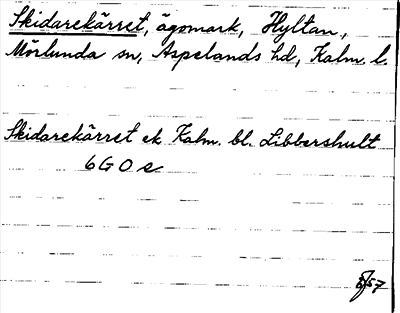 Skidarekärret, ägomark, Hyltan,
Mörlunda sn, Aspelands hd, Kalm. l.
Skidarekärret ek Kalm. bl. Libbershult
6 G O e